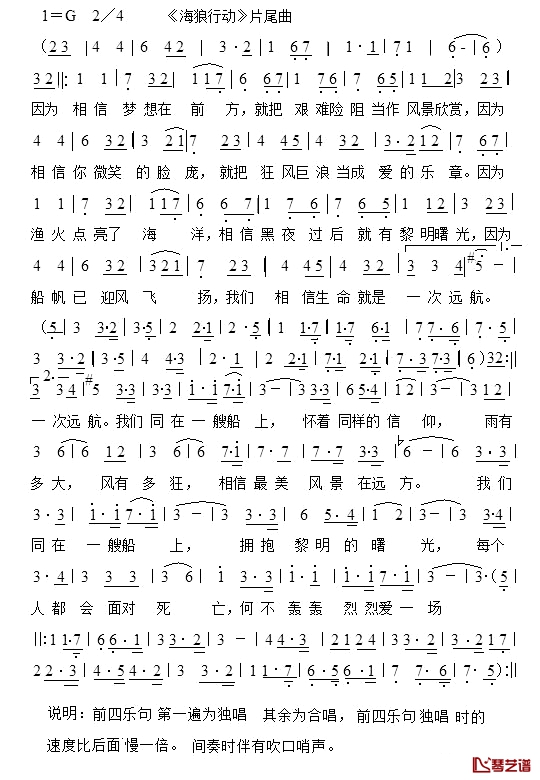 1=G 2/4 《海狼行动》片尾曲
(23 | 4 4 | 6 42 | 3·2 | 1 67 | 1·1 | 7 1 | 6 - | 6)
32 ‖: 1 1 | 7 32 | 117 | 7 23 | 1 67 | 1 76 | 7 65 | 11 2 | 3 23 |
因为 相信 梦想在 前 方，就把 艰难险阻当作风景欣赏，因为
4 4 | 6 32 | 3 21 | 7 23 | 4 45 | 4 32 | 3·2 12 | 7 67 |
相信你微笑 的脸庞，就把 狂风巨浪当成 爱的乐 章。因为
1 1 | 7 32 | 117 | 7 23 | 1 67 | 7 65 | 12 3 | 3 23 |
渔火点亮了 海 洋，相信黑夜过后就有黎明曙光，因为
4 4 | 6 32 | 321 | 7 23 | 4 45 | 4 32 | 3 3 4 | #5 - |
船帆已 迎风飞 扬，我们 相 信生命就是 一次远航。
(5 | 3 3·2 | 3·5 | 2 2·1 | 2·5 | 1 1·7 | 1·7 6·1 | 7 7·6 | 7·5 |
3 3·2 | 3·5 | 4 4·3 | 2·1 | 2 2·1 | 7·1 2·1 | 7·3 7·3 | 6) 32 :‖
2· 3 3 4 | #5 3·3 | 3·3 | 1·1 7·1 | 3 - | 3 3·3 | 6 5·4 | 1 2 | 3 - | 3 12 |
一次远航。我们同在一艘船 上， 怀着 同样的 信 仰， 雨有
3 6 | 6 12 | 3 6 | 6 7·1 | 7·7 | 7·7 3·3 | ♭6 - | 6 3·3 |
多大， 风有多狂， 相信最美 风景在远 方。 我们
3·3 | 1·1 7·1 | 3 - | 3 3·3 | 6 5·4 | 1 2 | 3 - | 3 3·4 |
同在 一艘船 上， 拥抱 黎明的曙 光， 每个
3·4 | 3 3 3 | 3 6 | 6 1 | 3·3 | 1·1 | 1·1 7·1 | 3 - | 3·(5 |
人都 会 面对 死 亡，何不 轰轰 烈烈爱一场
‖: 1 1·7 | 6 6·1 | 3 3·2 | 3 - | 4 4·3 | 212 4 | 3 3·2 | 3 3·2 |
2 2·3 | 4·5 4·2 | 3 3·2 | 1 1·7 | 6·5 5·6 | 7 7·6 | 7·5) :‖
说明：前四乐句 第一遍为独唱 其余为合唱，前四乐句 独唱 时的
速度比后面 慢一倍。 间奏时伴有吹口哨声。
琴艺谱